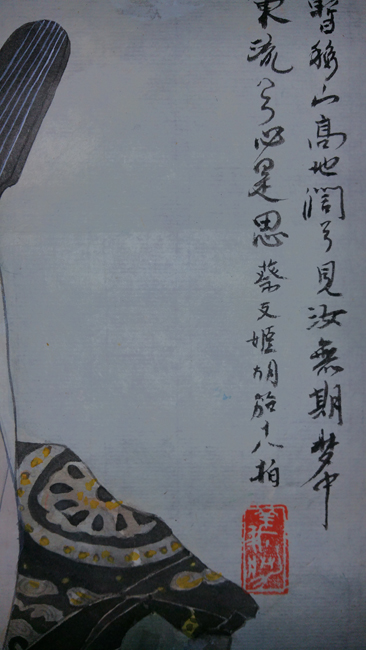 暫移山高地濶兮見汝無期梦中
東流兮心是思 蔡文姬胡笳十八拍